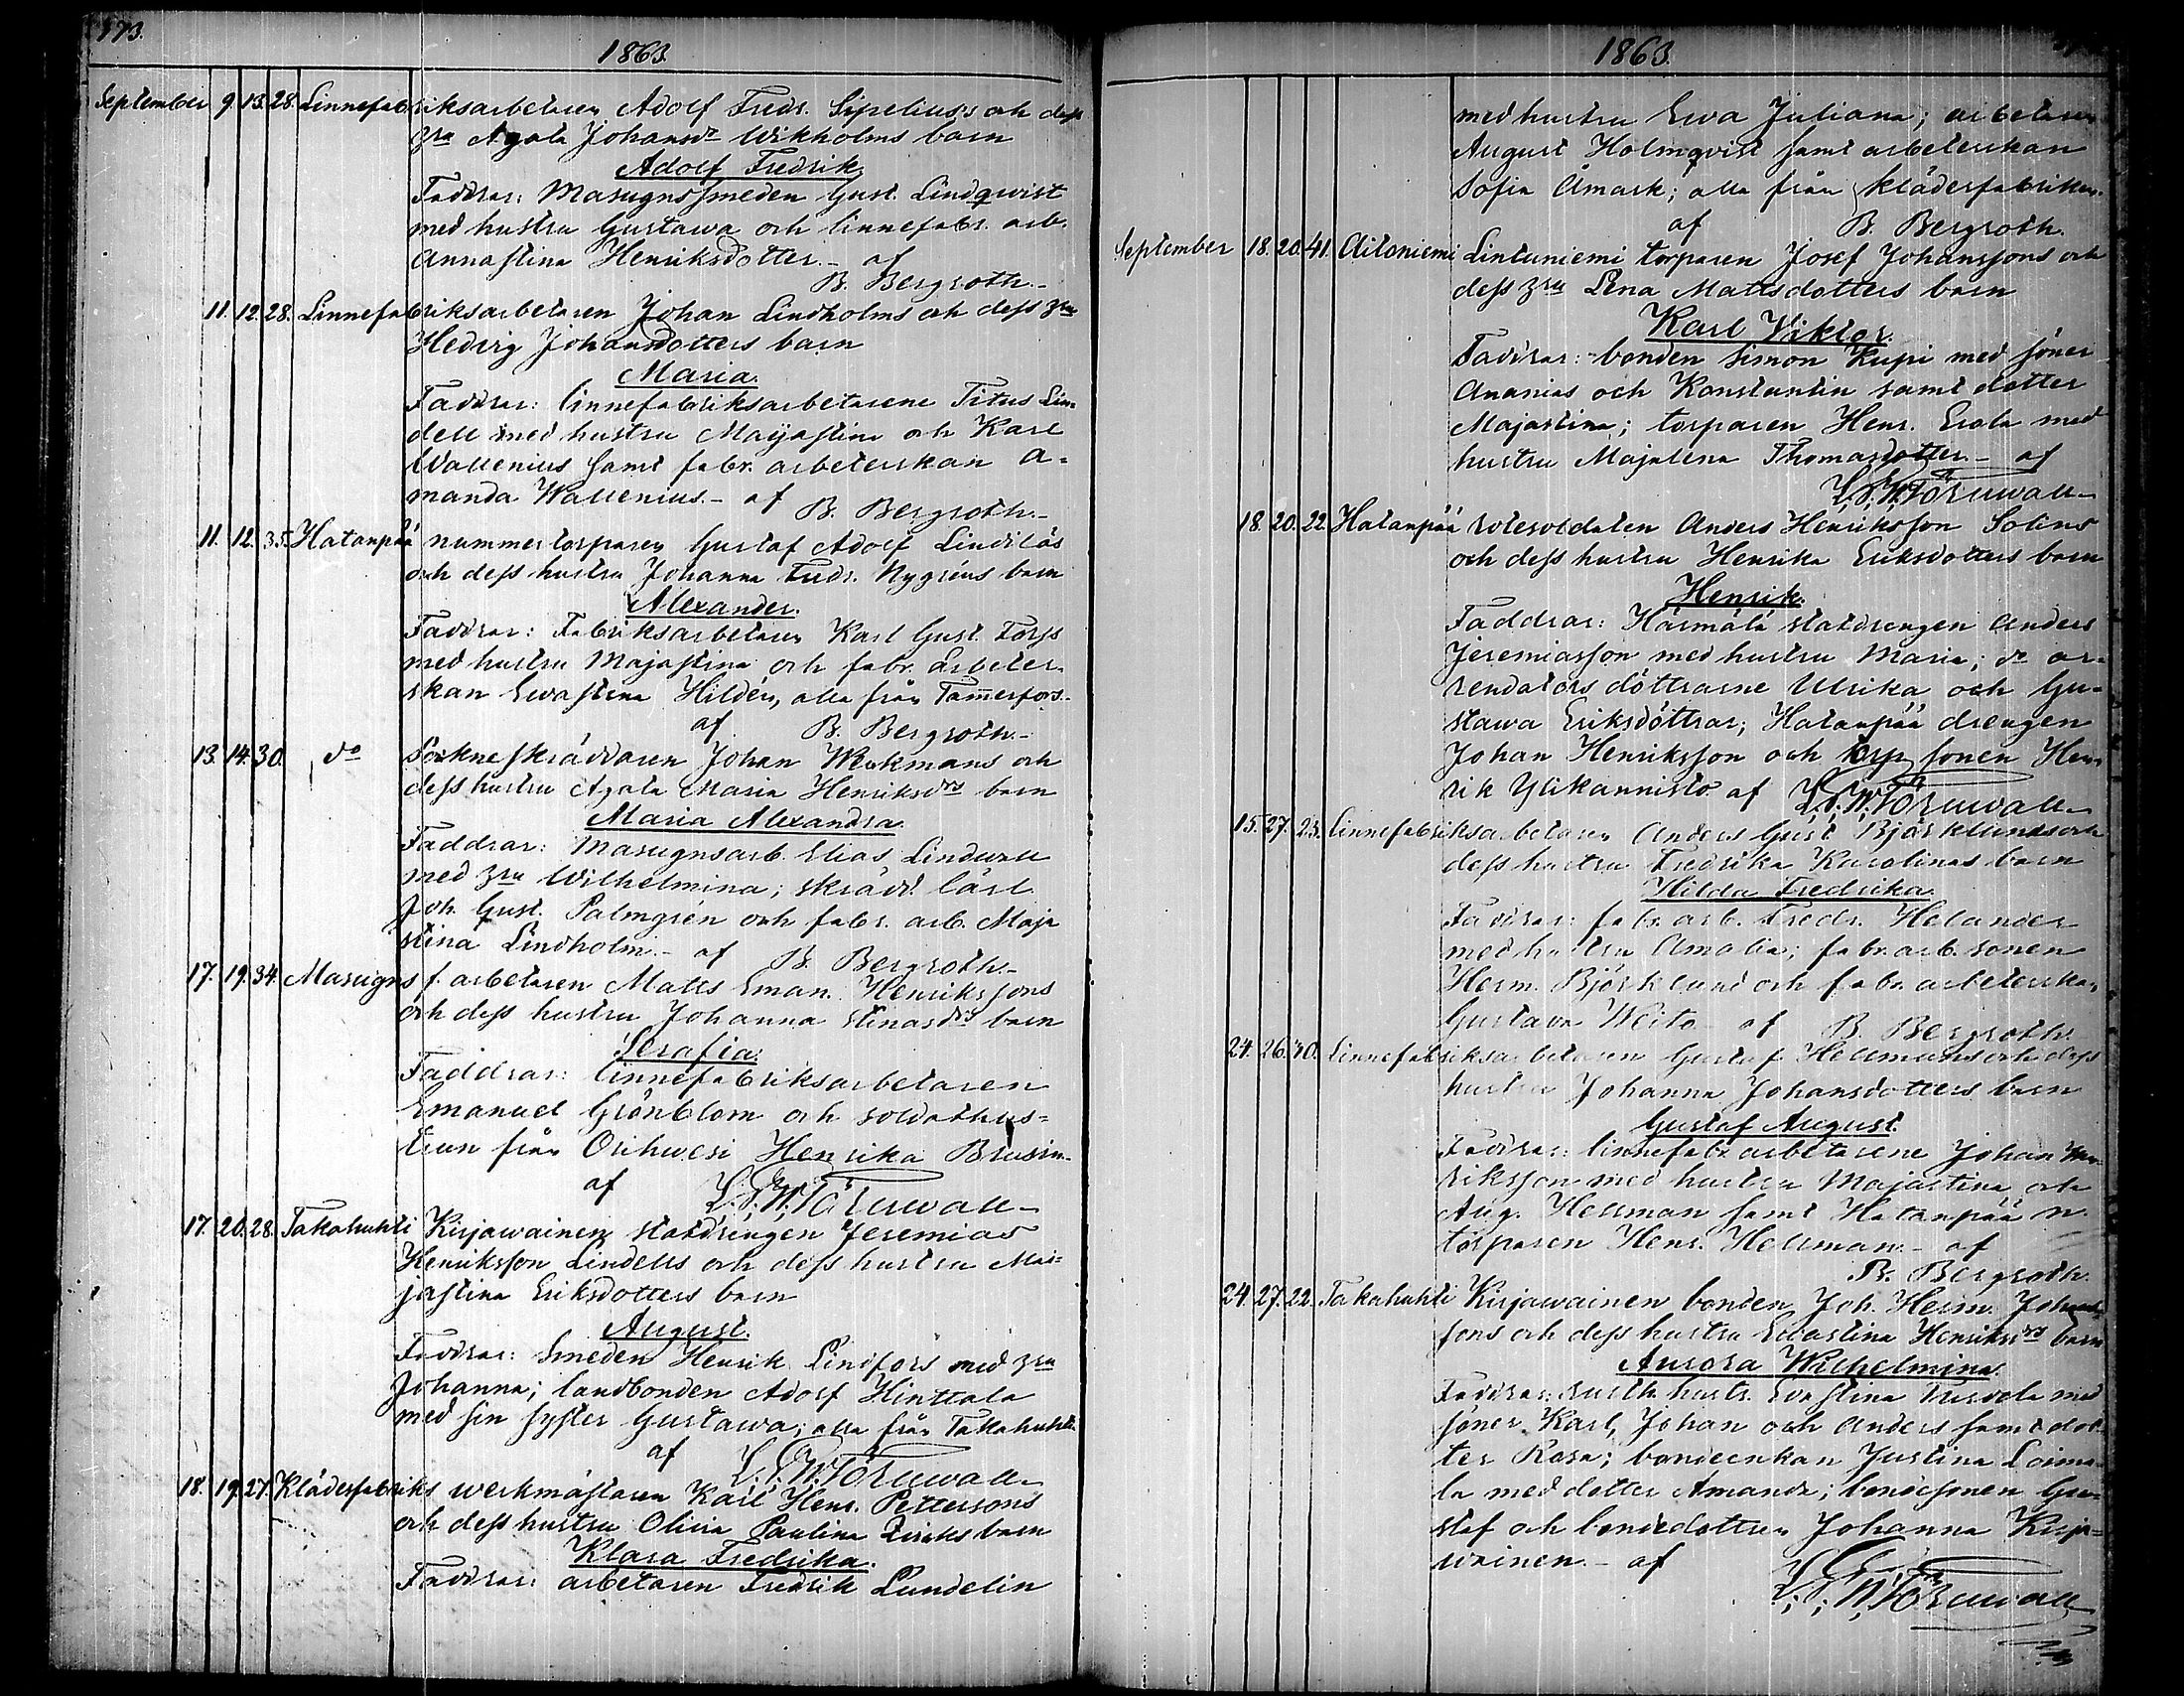 173.
1863.
September 9. 13. 28. Linnefabriksarbetaren Adolf Fredr. Sipelius's och dess
hru Agata Johansdr Wikholms barn
Adolf Fredrik
Faddrar: Masugnssmeden Gust. Lindqwist
med hustru Gustawa och linnefabr. arb.
Annastina Henriksdotter. - af
B. Bergroth. -
11. 12. 28. Linnefabriksarbetaren Johan Lindholms och dess hru
Hedvig Johansdotters barn
Maria.
Faddrar: linnefabriksarbetarene Titus Lin=
dell med hustru Majastina och Karl
Wallenius samt fabr. arbeterskan A=
manda Wallenius. - af B. Bergroth. -
11. 12. 35. Hatanpää nummertorparen Gustaf Adolf Lindelös
och dess hustru Johanna Fredr. Nygréns barn
Alexander.
Faddrar: Fabriksarbetaren Karl Gust. Forss
med hustru Majastina och fabr. arbeter=
skan Ewastina Hildén, alla från Tammerfors. -
af B. Bergroth. -
13. 14. 30. do Sockneskräddaren Johan Wickmans och
dess hustru Agata Maria Henriksdrs barn
Maria Alexandra.
Faddrar: Masugnsarb. Elias Lindwall
med hru Wilhelmina; skrädd. lärl.
Joh. Gust. Palmgrén och fabr. arb. Maja
stina Lindholm. - af B. Bergroth. -
17. 19. 34. Masugns f. arbetaren Matts Eman. Henrikssons
och dess hustru Johanna Stinasdrs barn
Serafia.
Faddrar: linnefabriksarbetaren
Emanuel Grönblom och soldathus=
trun från Orihwesi Henrika Brusin.
af L. L. W. Törnwall
17. 20. 28. Takahuhti Kirjawainen statdrengen Jeremias
Henriksson Lindells och dess hustru Ma=
jastina Eriksdotters barn
August.
Faddrar: Smeden Henrik Lindfors med hru
Johanna; landbonden Adolf Hinttala
med sin syster Gustawa; alla från Takahuhti.
af L. L. W. Törnwall
18. 19. 27. Klädesfabriks werkmästaren Karl Henr. Pettersons
och dess hustru Olivia Paulina barn
Klara Fredrika.
Faddrar: arbetaren Fredrik Lundelin
1863.
med hustru Ewa Juliana; arbetaren
August Holmqvist samt arbeterskan
Sofia Åmark; alla från klädesfabriken.
af B. Bergroth.
September 18. 20. 41. Aitoniemi Lintuniemi torparen Josef Johanssons och
dess hru Lena Mattsdotters barn
Karl Viktor.
Faddrar: bonden Simon Kupi med söner
Ananias och Konstantin samt dotter
Majastina; torparen Henr. Erola med
hustru Majalena Thomasdotter. - af
L. L. W. Törnwall
18. 20. 22. Hatanpää rotesoldaten Anders Henriksson Solins
och dess hustru Henrika Eriksdotters barn
Henrik.
Faddrar: Härmälä statdrengen Anders
Jeremiasson med hustru Maria; do ar=
rendators döttrarne Ulrika och Gu=
stawa Eriksdöttrar; Hatanpää drengen
Johan Henriksson och torp. sonen Hen
rik Ylikannisto af L. L. W. Törnwall
15. 27. 23. Linnefabriksarbetaren Anders Gust Björklunds och
dess hustru Fredrika Karolinas barn
Hilda Fredrika.
Faddrar: fabr. arb. Fredr. Helander
med hustru Amalia; fabr. arb. sonen
Herm. Björklund och fabr. arbeterskan
Gustava Weito - af B. Bergroth.
24. 26. 30. Linnefabriksarbetaren Gustaf Hellmans och dess
hustru Johanna Johansdotters barn
Gustaf August.
Faddrar: linnefabr. arbetarene Johan Hen
riksson med hustru Majastina och
Aug. Hellman samt Hatanpää n.
torparen Henr. Hellman. - af
B. Bergroth.
24. 27. 22. Takahuhti Kirjawainen bonden Joh. Herm. Johans
sons och dess hustru Ewastina Henriksdrs barn
Aurora Wilhelmina.
Faddrar: rusth. hustr. Evastina med
söner Karl, Johan och Anders samt dot=
ter Rosa; bondeenkan Justina
la med dotter Amanda; bondesonen Gu=
staf och bondedottren Johanna Kirja=
wainen. - af
L. L. W. Törnwall